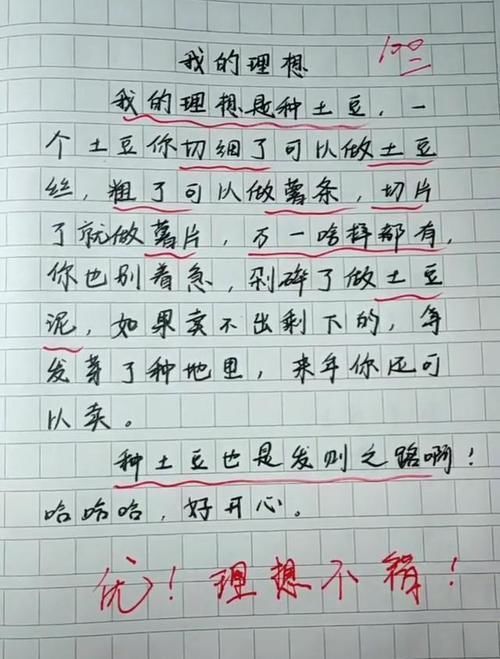 我的理想
100
我的理想是种土豆，一
个土豆你切细了可以做土豆
丝，粗了可以做薯条，切片
了就做薯片，万一啥样都有，
你也别着急，剁碎了做土豆
泥，如果卖不出剩下的，等
发芽了种地里，来年你还可
以卖。
种土豆也是发财之路啊！
哈哈哈，好开心。
优！理想不错！